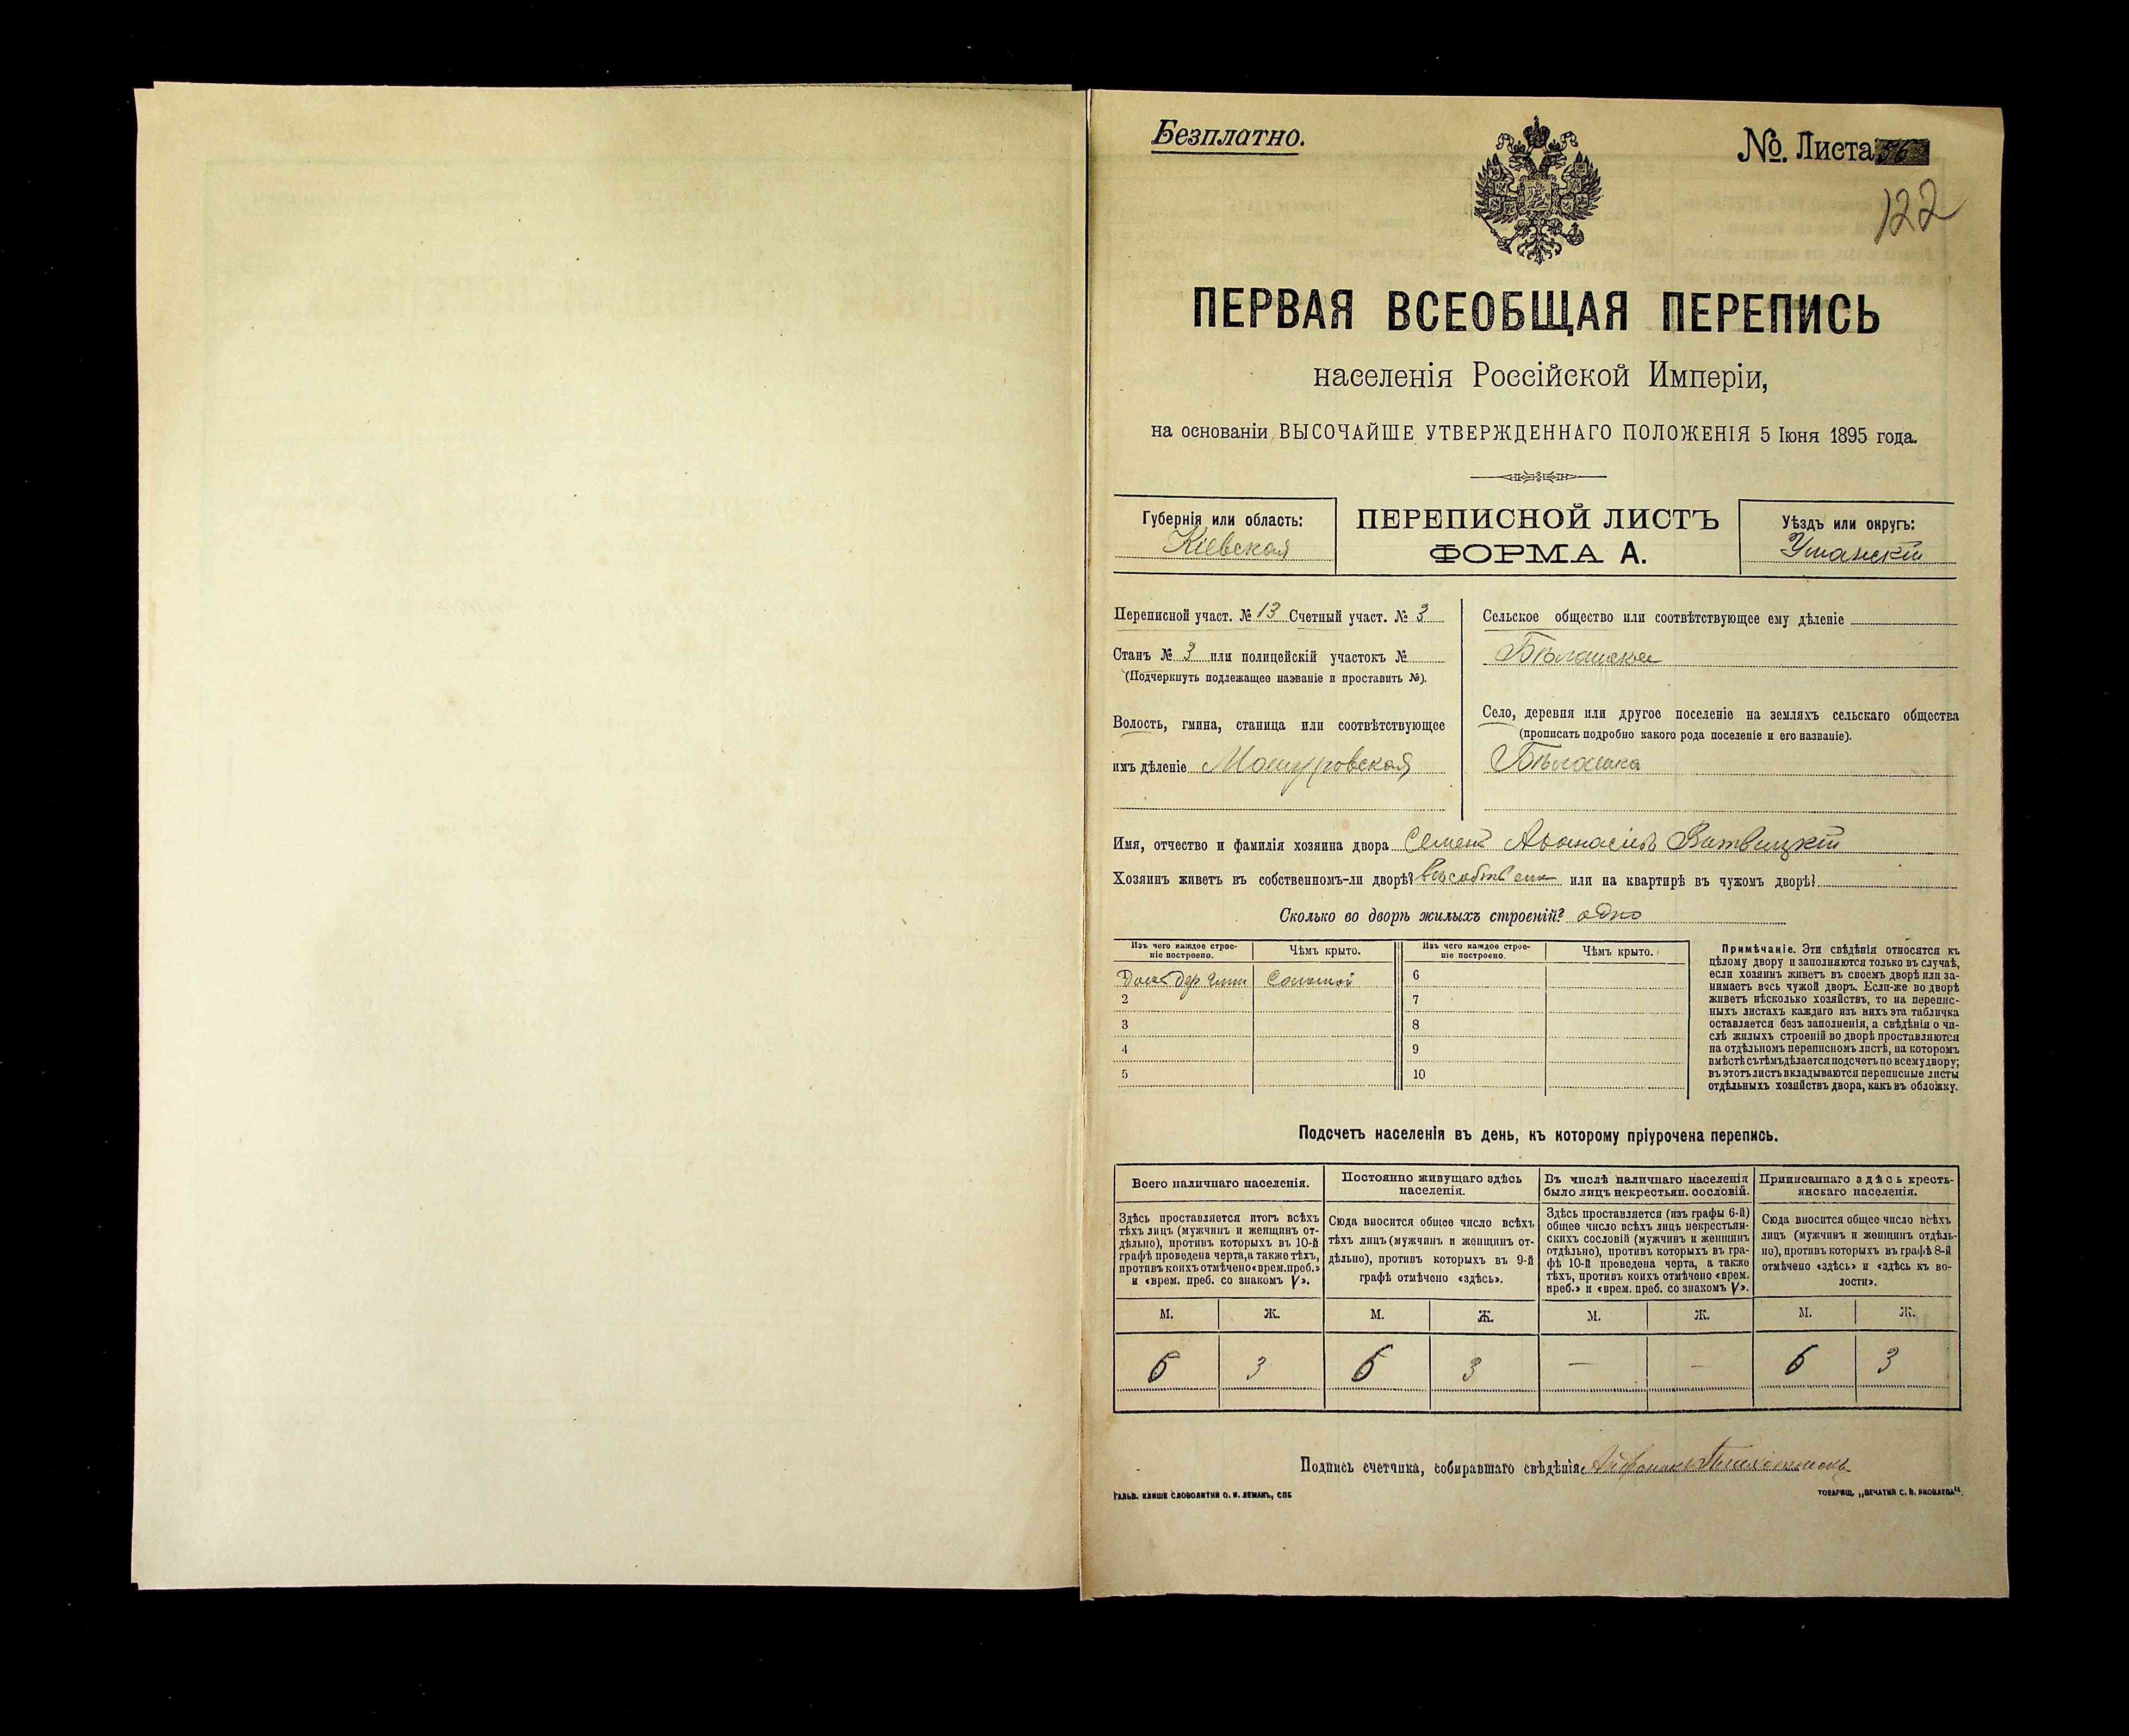 Безплатно.
№. Листа 56
122
ПЕРВАЯ ВСЕОБЩАЯ ПЕРЕПИСЬ
населенія Россійской Имперіи,
на основаніи ВЫСОЧАЙШЕ УТВЕРЖДЕННАГО ПОЛОЖЕНІЯ 5 Іюня 1895 года.
Губернія или область:
Кіевская
ПЕРЕПИСНОЙ ЛИСТЪ
ФОРМА А.
Уѣздъ или округъ:
Уманскій
Переписной участ. № 13 Счетный участ. № 3
Станъ № 3 или полицейскій участокъ №
(Подчеркнуть подлежащее названіе и проставить №).
Волость, гмина, станица или соотвѣтствующее
имъ дѣленіе Машуровская
Сельское общество или соотвѣтствующее ему дѣленіе
Бѣлашское
Село, деревня или другое поселеніе на земляхъ сельскаго общества
(прописать подробно какого рода поселеніе и его названіе).
Бѣлашка
Имя, отчество и фамилія хозяина двора Семенъ Афанасіевъ Витвицкій
Хозяинъ живетъ въ собственномъ-ли дворѣ? въ собствен или на квартирѣ въ чужомъ дворѣ?
Сколько во дворѣ жилыхъ строеній? одно
Изъ чего каждое строе-
ніе построено.
Чѣмъ крыто.
Изъ чего каждое строе-
ніе построено.
Чѣмъ крыто.
дер Соломой
2
3
4
5
6
7
8
9
10
Примѣчаніе. Эти свѣдѣнія относятся къ
цѣлому двору и заполняются только въ случаѣ,
если хозяинъ живетъ въ своемъ дворѣ или за-
нимаетъ весь чужой дворъ. Если-же во дворѣ
живетъ нѣсколько хозяйствъ, то на перепис-
ныхъ листахъ каждаго изъ нихъ эта табличка
оставляется безъ заполненія, а свѣдѣнія о чи-
слѣ жилыхъ строеній во дворѣ проставляются
на отдѣльномъ переписномъ листѣ, на которомъ
вмѣстѣ съ тѣмъ дѣлается подсчетъ по всему двору;
въ этотъ листъ вкладываются переписные листы
отдѣльныхъ хозяйствъ двора, какъ въ обложку.
Подсчетъ населенія въ день, къ которому пріурочена перепись.
Всего наличнаго населенія.
Здѣсь проставляется итогъ всѣхъ
тѣхъ лицъ (мужчинъ и женщинъ от-
дѣльно), противъ которыхъ въ 10-й
графѣ проведена черта, а также тѣхъ,
противъ коихъ отмѣчено «врем. преб.»
и «врем. преб. со знакомъ V».
Постоянно живущаго здѣсь
населенія.
Сюда вносится общее число всѣхъ
тѣхъ лицъ (мужчинъ и женщинъ от-
дѣльно), противъ которыхъ въ 9-й
графѣ отмѣчено «здѣсь».
Въ числѣ наличнаго населенія
было лицъ некрестьян. сословій.
Здѣсь проставляется (изъ графы 6-й)
общее число всѣхъ лицъ некрестьян-
скихъ сословій (мужчинъ и женщинъ
отдѣльно), противъ которыхъ въ гра-
фѣ 10-й проведена черта, а также
тѣхъ, противъ коихъ отмѣчено «врем.
преб.» и «врем. преб. со знакомъ V».
Приписаннаго здѣсь кресть-
янскаго населенія.
Сюда вносится общее число всѣхъ
лицъ (мужчинъ и женщинъ отдѣль-
но), противъ которыхъ въ графѣ 8-й
отмѣчено «здѣсь» и «здѣсь къ во-
лости».
М. Ж. М. Ж. М. Ж. М. Ж.
6 3 6 3 — — 6 3
Подпись счетчика, собиравшаго свѣдѣнія
ГАЛЬВ. КЛИШЕ СЛОВОЛИТНИ О. И. ЛЕМАНЪ, СПБ
ТОВАРИЩ. „ПЕЧАТНЯ С. П. ЯКОВЛЕВА“.